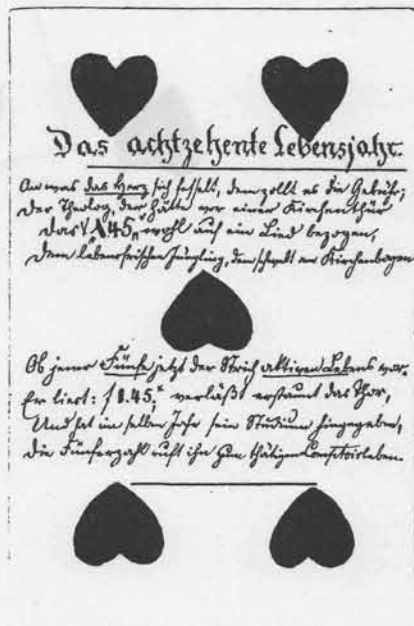 Das achtzehente Lebensjahr.
An was das Herz sich fesselt, dem zollt es die Gebühr;
Der Theolog, der hätte vor einer Kirchenthür
Das 145 wohl auf ein Lied bezogen,
Dem lebensfrischen Jüngling, dem schwebt am Kirchenbogen
Ob jener Fünfe jetzt der Strich aktiven Lebens vor.
Er liest: f 1.45, verläßt erstaunt das Thor,
Und hat im selben Jahr sein Studium hingegeben,
Die Fünferzahl ruft ihn zum thätigen Comptoirleben.